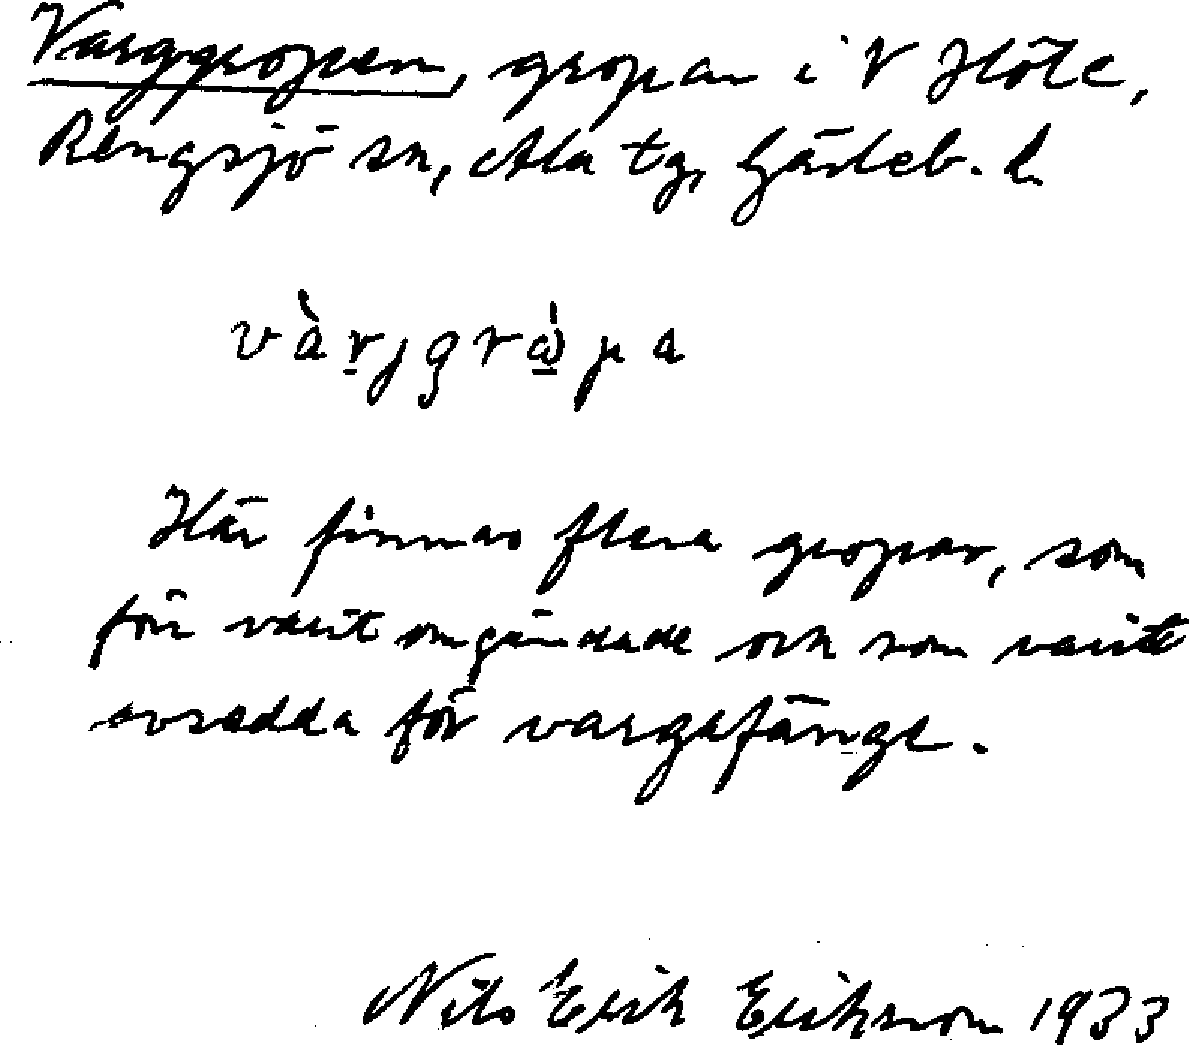 Varggropen, gropar i V Höle,
Rengsjö sn, Ala tg, Gävleb. l.
vàrjgrὼpa
Här finnas flera gropar, som
förr varit omgärdade och som varit
avsedda för vargafänge.
Nils Erik Erikson 1933